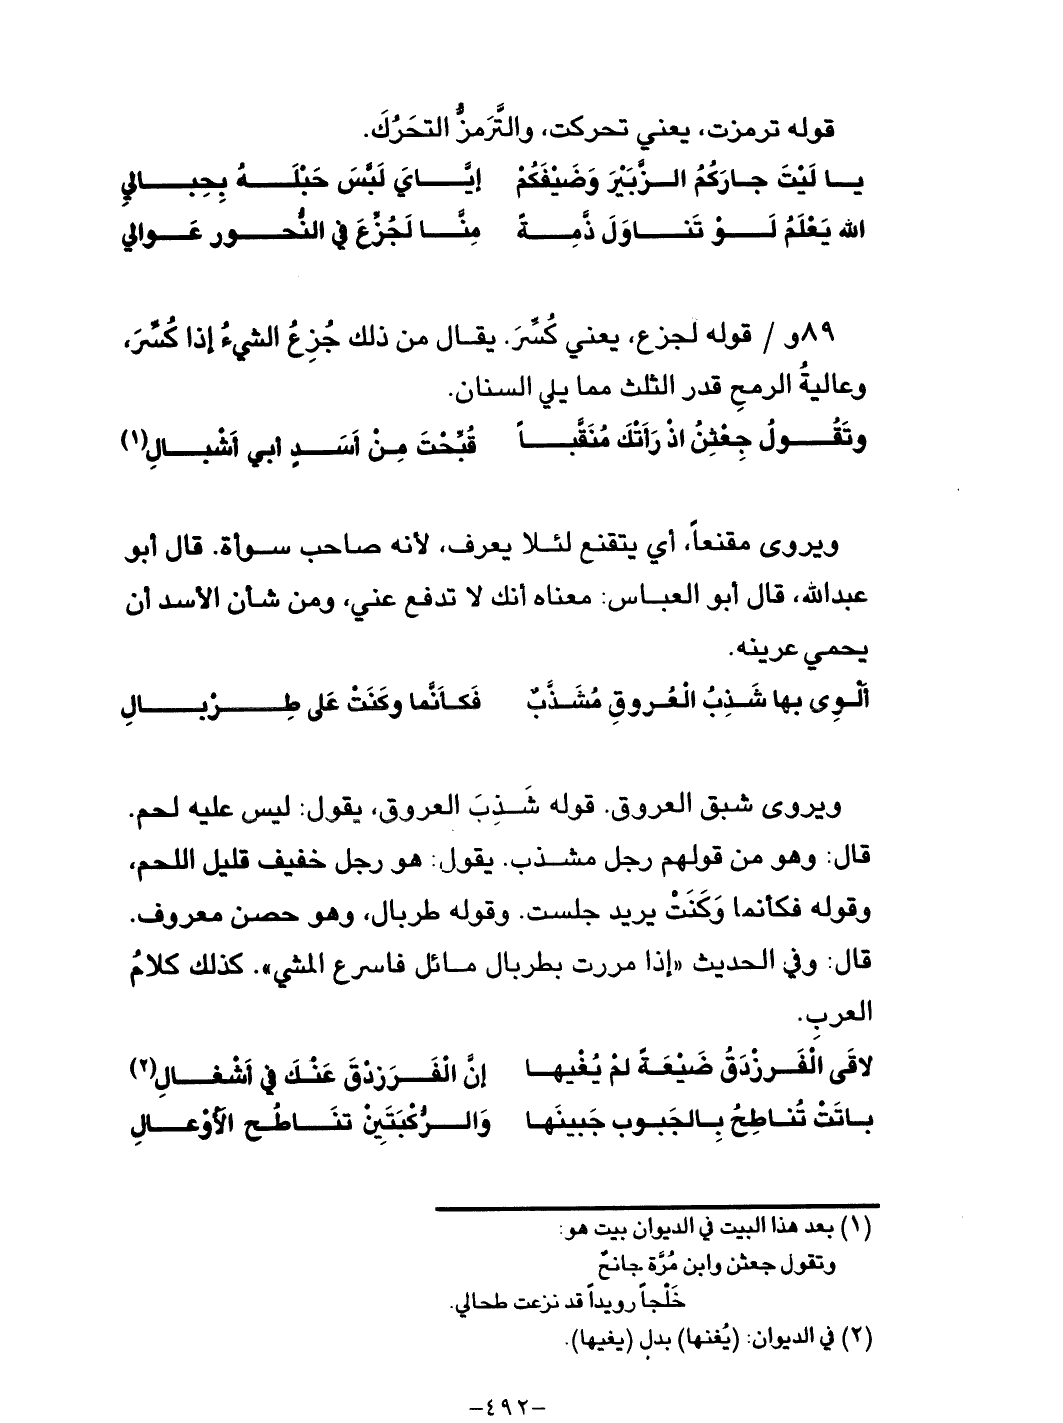 قوله ترمزت، يعني تحركت، والتَّرَمزُّ التحَرُكَ.
يا لَيْتَ جارَكُمُ الزُّبَيْرَ وَضَيْفَكُمْ إيَّايَ لَبَّسَ حَبْلَهُ بِحِبالي
الله يَعْلَمُ لَوْ تَناوَلَ ذَّمِةً مِنَّا لَجُزِّعَ في النُّحورِ عَوالي
٨٩و / قوله لجزع، يعني كُسِّرَ. يقال من ذلك جُزِعُ الشيءُ إذا كُسَّرَ،
وعاليةُ الرمحِ قدر الثلث مما يلي السنان.
وتَقُولُ جِعْثِنُ اذْ رَأَتْكَ مُنَقَّباً قُبِّحْتَ مِنْ أسَدٍ أبي أشْبالِ(١)
ويروى مقنعاً، أي يتقنع لئلا يعرف، لأنه صاحب سوأة. قال أبو
عبدالله، قال أبو العباس: معناه أنك لا تدفع عني، ومن شأن الأسد أن
يحمي عرينه.
ألْوِى بها شَذِبُ الْعُروقِ مُشَذَّبٌ فَكأنَّما وكَنَتْ عَلى طِرْبالِ
ويروى شبق العروق. قوله شَذِبَ العروق، يقول: ليس عليه لحم.
قال: وهو من قولهم رجل مشذب. يقول: هو رجل خفيف قليل اللحم،
وقوله فكأنما وَكَنَتْ يريد جلست. وقوله طربال، وهو حصن معروف.
قال: وفي الحديث «إذا مررت بطربال مائل فاسرع المشي». كذلك كلامُ
العربِ.
لاقَى الْفَرزْدَقُ ضَيْعَةً لمْ يُغْيها إنَّ الْفَرَزدْقَ عَنْكَ في أشْغالِ(٢)
باتَتْ تُناطِحُ بِالجَبوب جَبينَها وَالرُّكْبَتَينْ تنَاطُح الأوْعالِ
(١) بعد هذا البيت في الديوان بيت هو:
وتقول جعثن وابن مُرَّة جانحٌ
خَلْجاً رويداً قد نزعت طحالي.
(٢) في الديوان: (يُغنها) بدل (يغيها).
-٤٩٢-